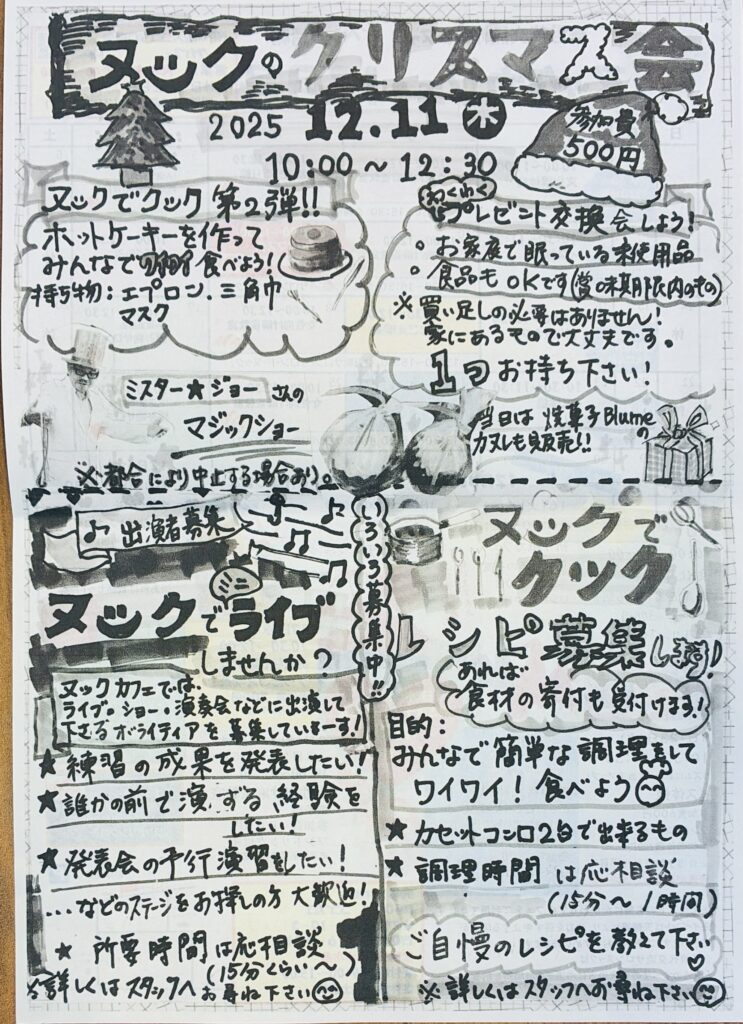 ヌックのクリスマス会
2025 12.11 木
10:00〜12:30
参加費
500円
ヌックでクック 第2弾!!
ホットケーキを作って
みんなでワイワイ食べよう!
持ち物:エプロン.三角巾
マスク
わくわく
プレゼント交換会しよう!
・お家庭で眠っている未使用品
・食品もOKです(賞味期限内のもの)
※買い足しの必要はありません!
家にあるもので大丈夫です。
1つお持ち下さい!
ミスター★ジョーさんの
マジックショー
※都合により中止する場合あり。
当日は焼菓子Blumeの
カヌレも販売!!
いろいろ募集中!!
♪出演者募集
ヌックでライブ
しませんか?
ヌックカフェでは、
ライブ・ショー・演奏会などに出演して
下さるボライティアを募集していまーす!
★練習の成果を発表したい!
★誰かの前で演ずる経験を
したい!
★発表会の予行演習をしたい!
...などのステージをお探しの方大歓迎!
★所要時間は応相談
(15分くらい〜)
※詳しくはスタッフへお尋ね下さい
ヌックで
クック
レシピ募集します!
あれば
食材の寄付も受付けます!
目的:
みんなで簡単な調理をして
ワイワイ!食べよう
★カセットコンロ2台で出来るもの
★調理時間は応相談
(15分〜1時間)
ご自慢のレシピを教えて下さい♡
※詳しくはスタッフへお尋ね下さい